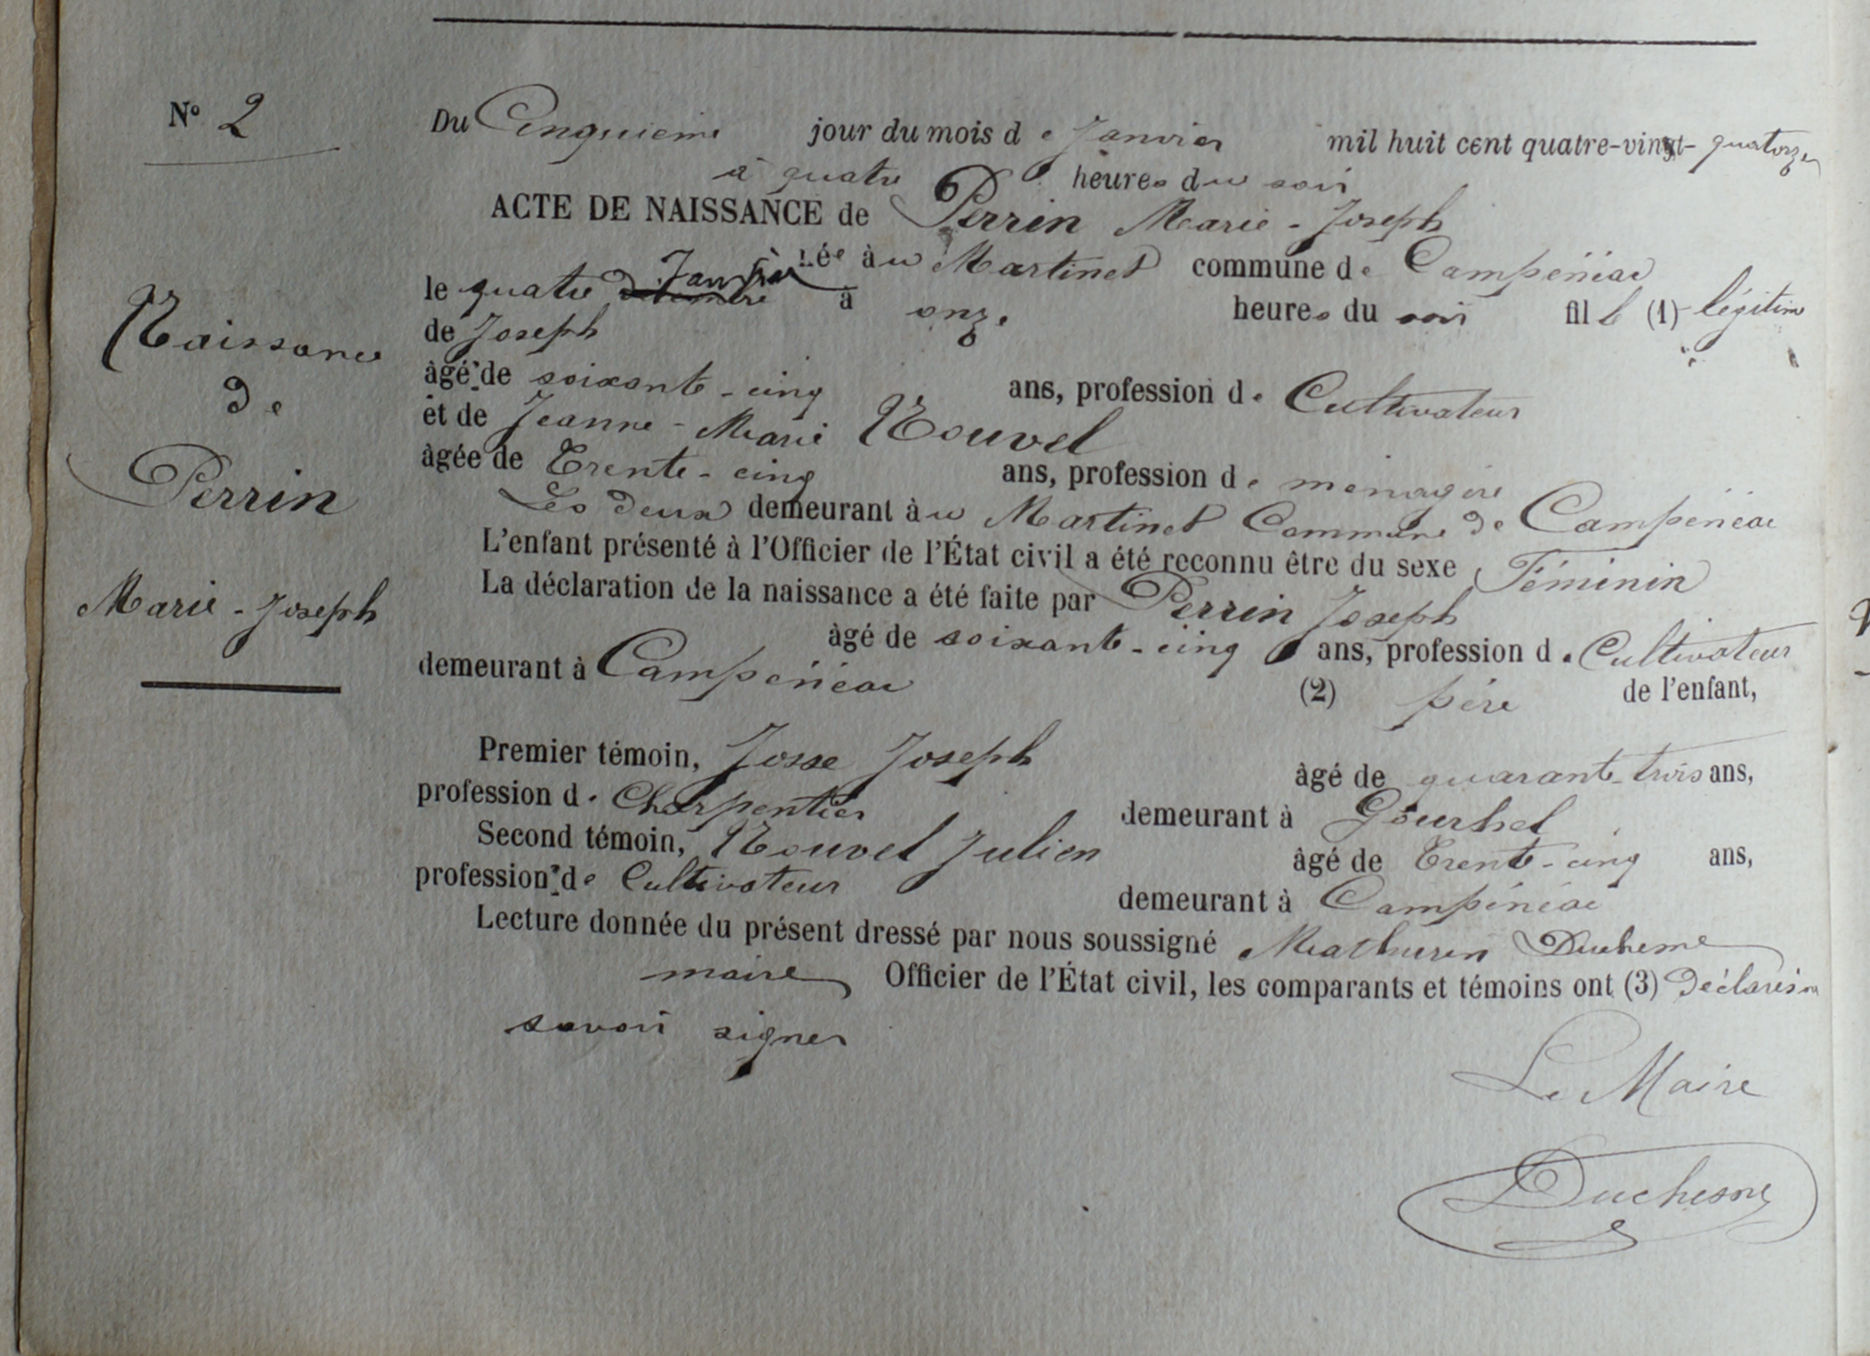 N° 2
Du Cinquieme jour du mois de Janvier mil huit cent quatre-vingt-quatorze
à quatre heures du soir
ACTE DE NAISSANCE de Perrin Marie-Joseph
née au Martinet commune de Campénéac
le quatre Janvier à onze heures du soir fille (1) légitime
de Joseph
âgé de soixante-cinq ans, profession de Cultivateur
et de Jeanne-Marie Nouvel
âgée de Trente-cinq ans, profession de ménagère
Les deux demeurant au Martinet Commune de Campénéac
L'enfant présenté à l'Officier de l'État civil a été reconnu être du sexe Féminin
La déclaration de la naissance a été faite par Perrin Joseph
âgé de soixante-cinq ans, profession de Cultivateur
demeurant à Campénéac (2) père de l'enfant,
Premier témoin, Josse Joseph âgé de quarante-trois ans,
profession de Charpentier demeurant à Gourhel
Second témoin, Nouvel Julien âgé de Trente-cinq ans,
profession de Cultivateur demeurant à Campénéac
Lecture donnée du présent dressé par nous soussigné Mathurin Duchesne
maire Officier de l'État civil, les comparants et témoins ont (3) déclaré ne
savoir signer
Le Maire
Duchesne
Naissance
de
Perrin
Marie-Joseph